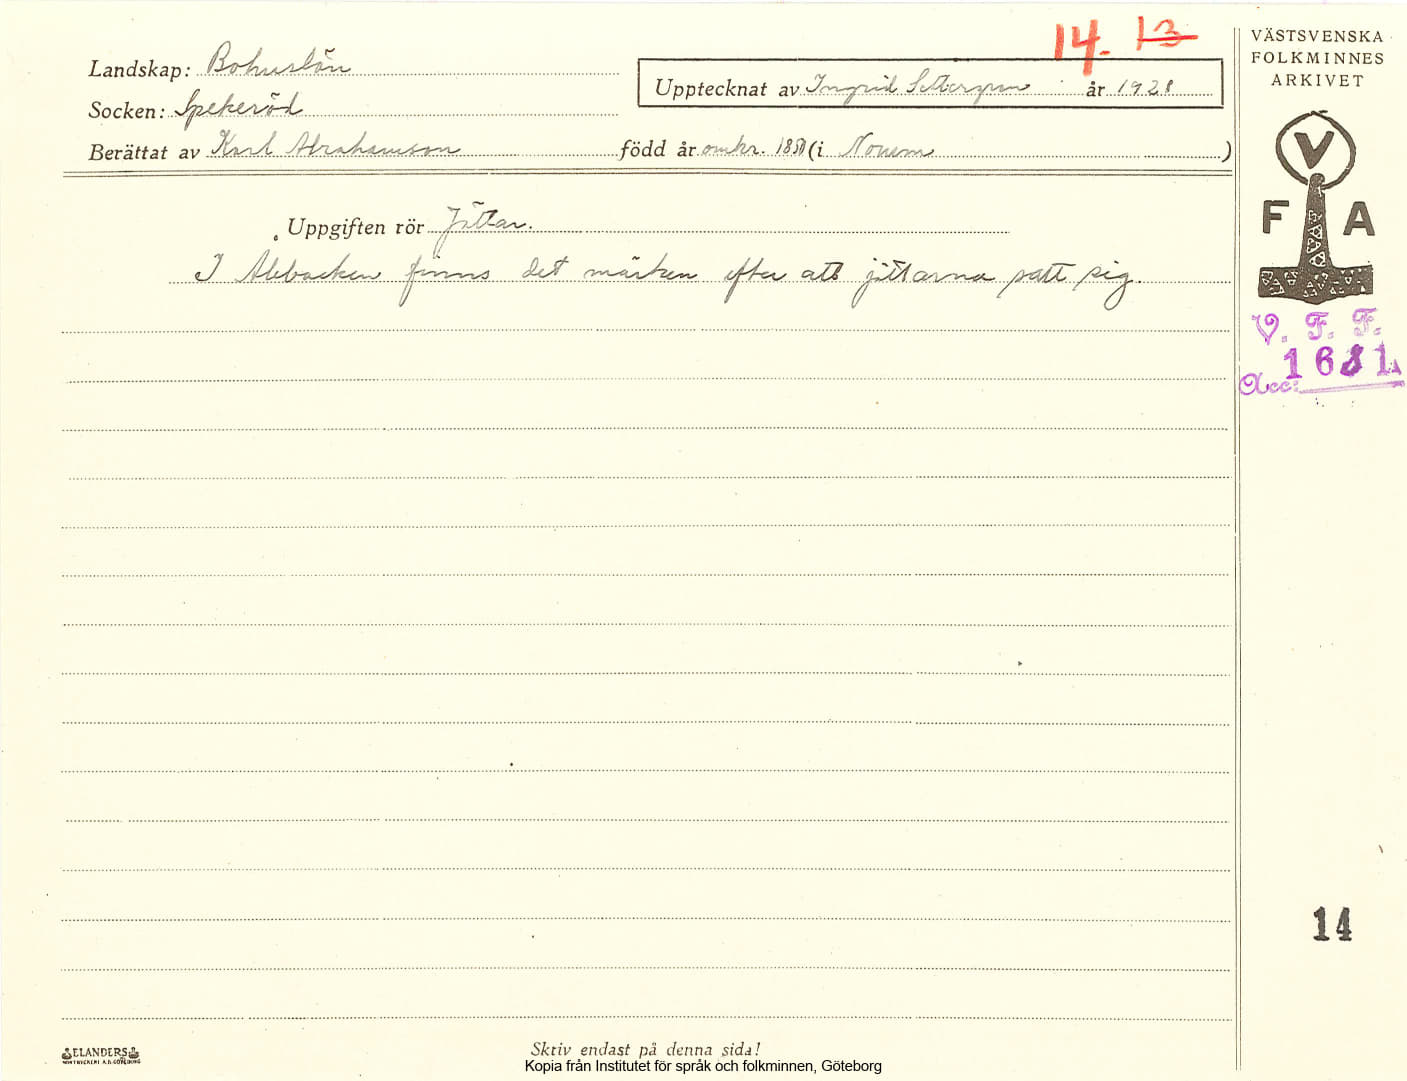 14. 13
Landskap: Bohuslän
Socken: Spekeröd
Upptecknat av Ingrid Settergren år 1928
Berättat av Karl Abrahamson född år omkr. 1850 (i Norum)
Uppgiften rör Jättar.
I Alebacken finns det märken efter att jättarna satt sig.
VÄSTSVENSKA
FOLKMINNES
ARKIVET
V
F A
V. F. F.
Acc: 1681
14
ELANDERS
Skriv endast på denna sida!
Kopia från Institutet för språk och folkminnen, Göteborg